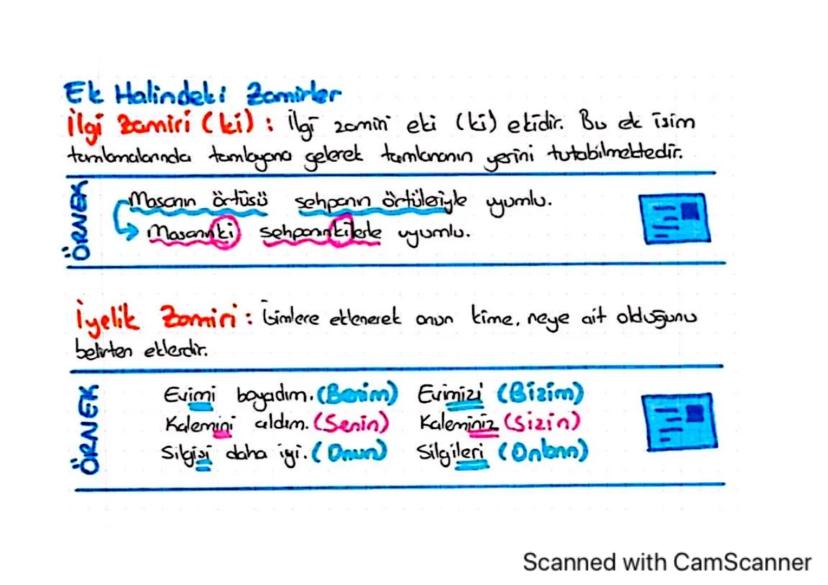 Ek Halindeki Zamirler
İlgi Zamiri (ki) : İlgi zamiri eki (ki) ekidir. Bu ek isim
tamlamalarında tamlayana gelerek tamlananın yerini tutabilmektedir.
ÖRNEK
Masanın örtüsü sehpanın örtüleriyle uyumlu.
Masanınki sehpanınkilerle uyumlu.
İyelik Zamiri : İsimlere eklenerek onun kime, neye ait olduğunu
belirten eklerdir.
ÖRNEK
Evimi boyadım. (Benim) Evimizi (Bizim)
Kalemini aldım. (Senin) Kaleminiz (Sizin)
Silgisi daha iyi. (Onun) Silgileri (Onların)
Scanned with CamScanner